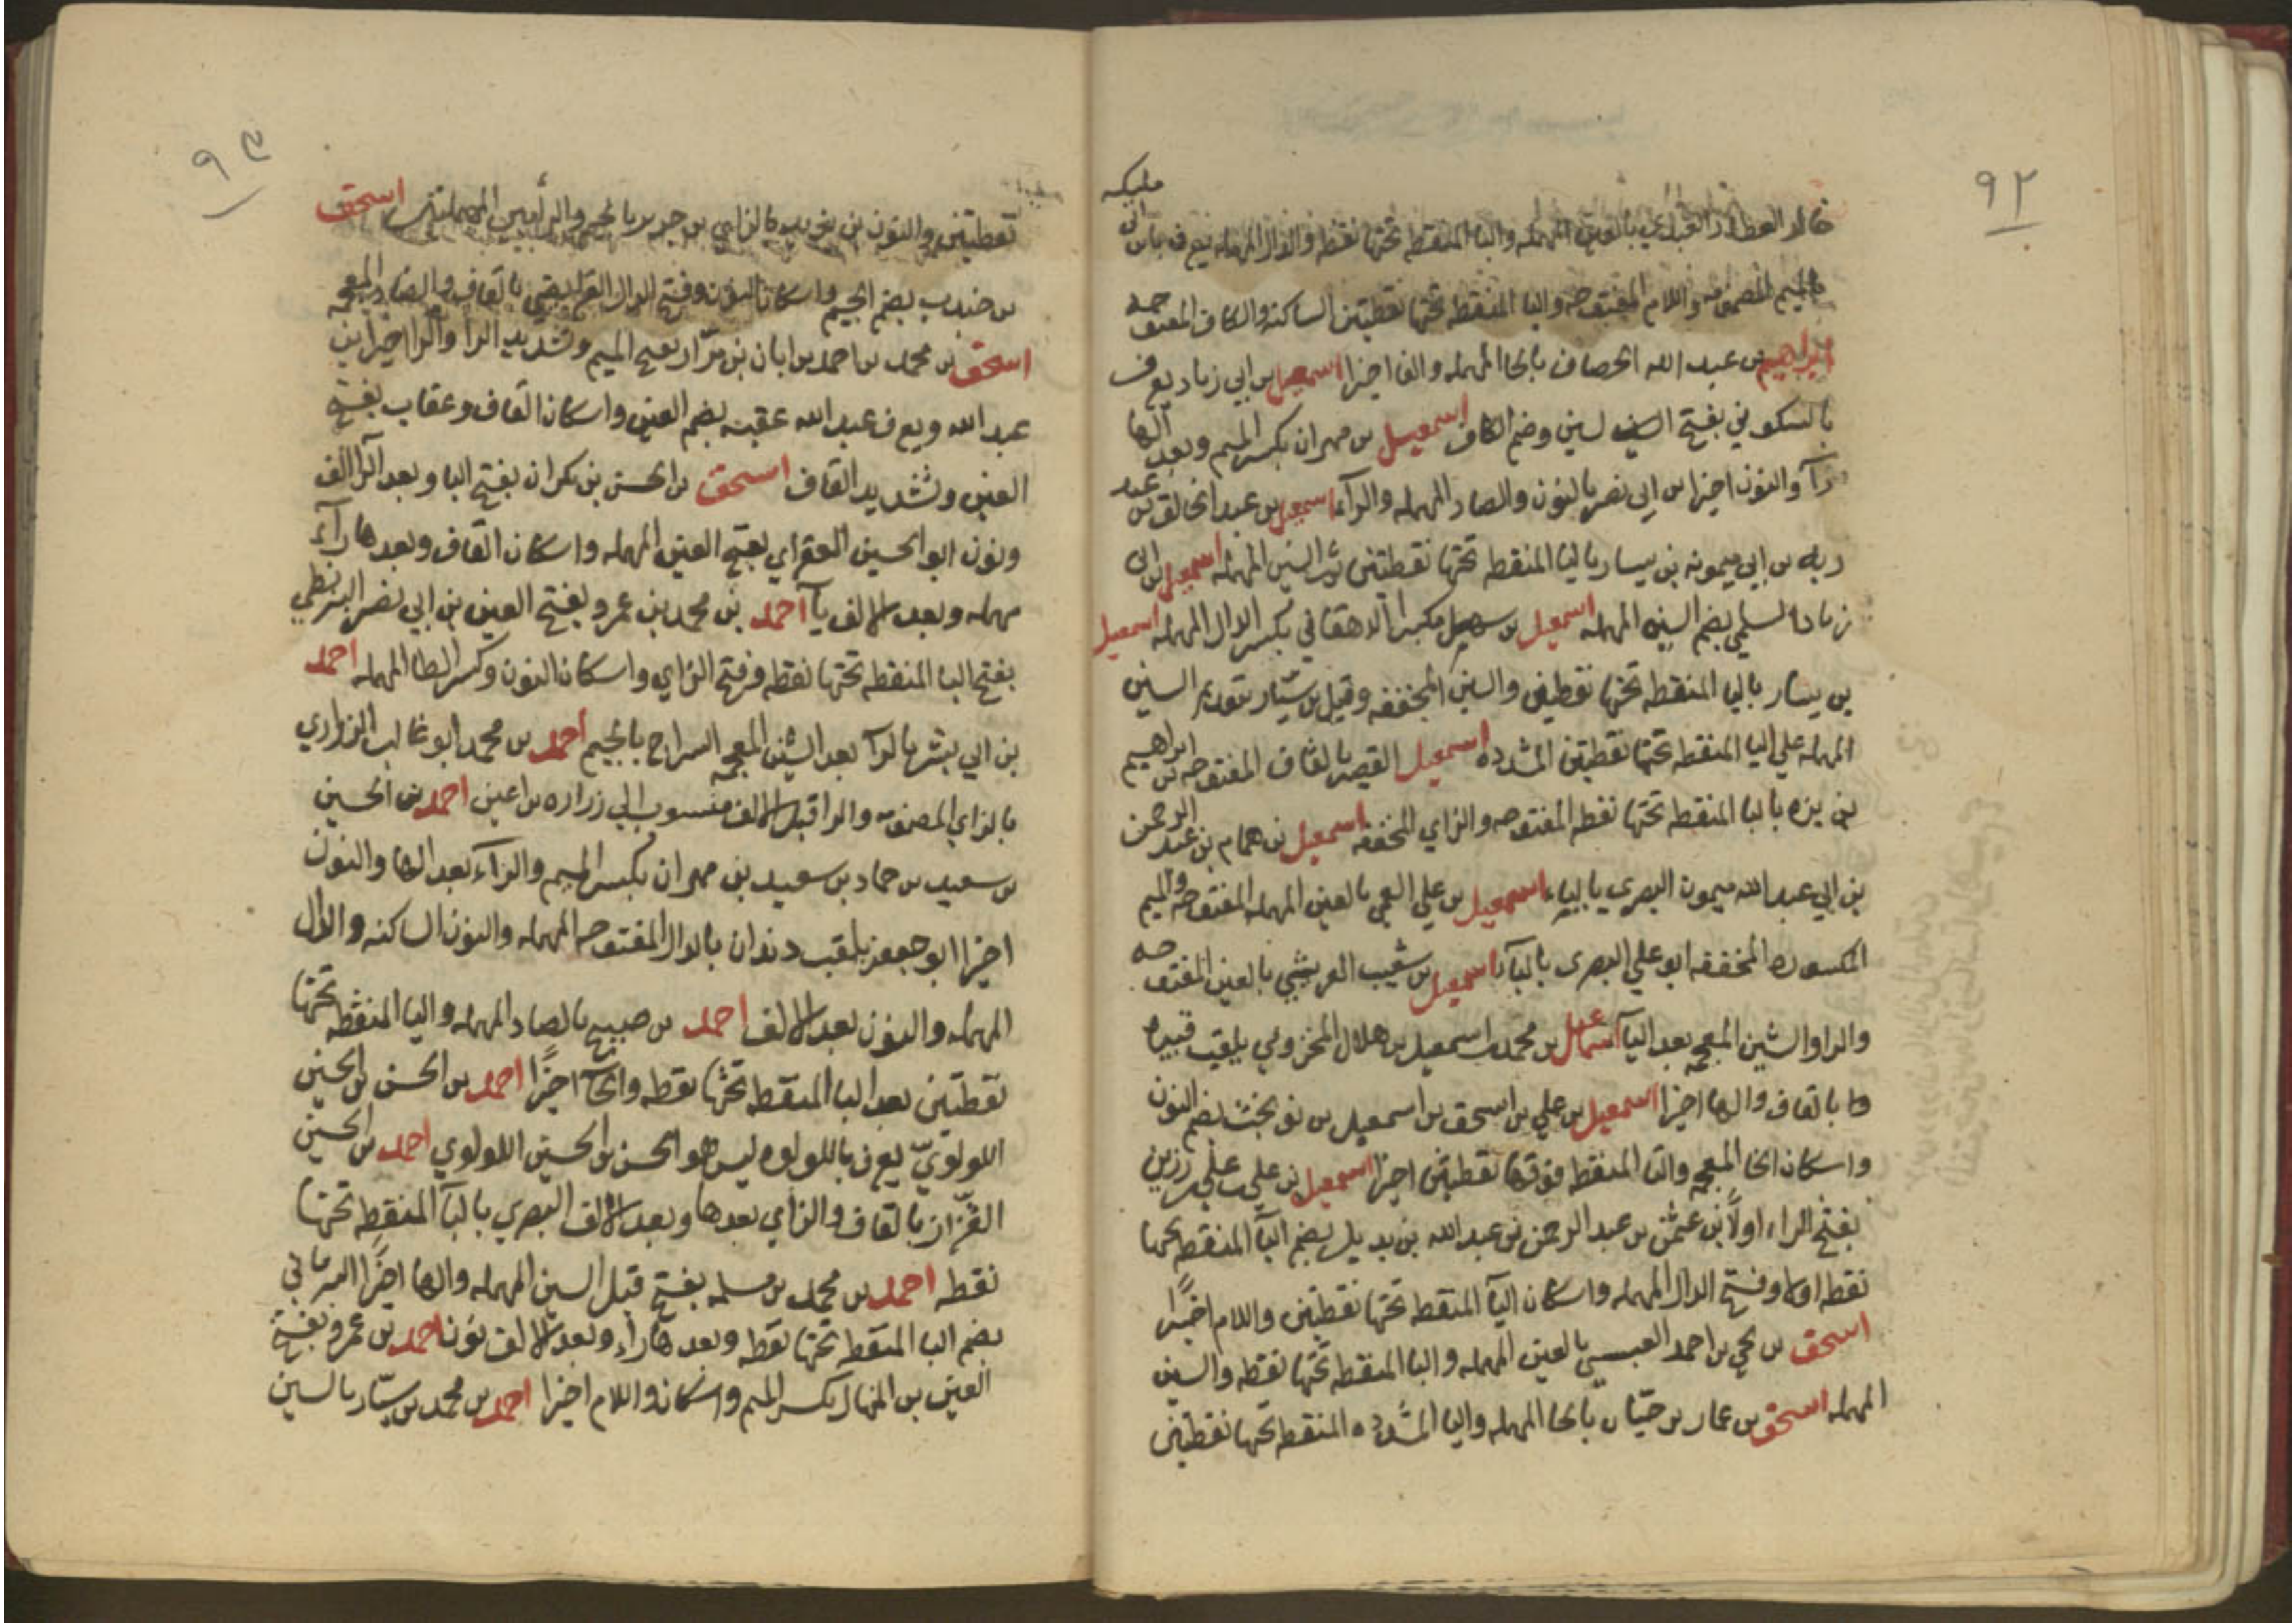 ٩٢
مليكه
خالد العطار العبدي بالعين المهمله والبا المنقطه تحتها نقطه والدال المهمله يعرف بابن ابي
بالميم المضمومه واللام المفتوحه واليا المنقطه تحتها نقطتين الساكنه والكاف المفتوحه
ابراهيم بن عبد الله الخصاف بالخا المهمله والفا اخيرا اسمعيل بن ابي زياد يعرف
بالسكوني بفتح السين وضم الكاف اسمعيل بن مهران بكسر الميم وبعد الها
رآ والنون اخيرا بن ابي نصر بالنون والصاد المهمله والرآء اسمعيل بن عبد الخالق بن عبد
ربه بن ابي ميمونه بن يسار باليا المنقطه تحتها نقطتين ثم السين المهمله اسمعيل بن ابي
زياد السلمي بضم السين المهمله اسمعيل بن سهيل مكبرا الدهقاني بكسر الدال المهمله اسمعيل
بن يسار باليا المنقطه تحتها نقطتين والسين المخففه وقيل بن سيّار بتقديم السين
المهمله علي اليا المنقطه تحتها نقطتين المشدده اسمعيل القصير بالقاف المفتوحه بن ابراهيم
بن بزه بالبا المنقطه تحتها نقطه المفتوحه والزاي المخففه اسمعيل بن همام بن عبد الرحمن
بن ابي عبد الله ميمون البصري بالباء اسمعيل بن علي العمي بالعين المهمله المفتوحه والميم
المكسوره المخففه ابو علي البصري بالبآء اسمعيل بن شعيب العريشي بالعين المفتوحه
والرا والشين المعجمه بعد اليآ اسماعيل بن محمد بن اسمعيل بن هلال المخزومي يلقب قنبره
بالقاف والها اخيرا اسمعيل بن علي بن اسحق بن اسمعيل بن نوبخت بضم النون
واسكان الخا المعجمه والتا المنقطه فوقها نقطتين اخيرا اسمعيل بن علي بن علي بن رزين
بفتح الراء اولًا بن عثمن بن عبد الرحمن بن عبد الله بن بديل بضم البآ المنقطه تحتها
نقطه اولا وفتح الدال المهمله واسكان اليآ المنقطه تحتها نقطتين واللام اخيرًا
اسحق بن يحي بن احمد العبسي بالعين المهمله والبا المنقطه تحتها نقطه والسين
المهمله اسحق بن عمار بن حيّان بالحا المهمله واليا المشدده المنقطه تحتها نقطتين
٩٣
نقطتين والنون بن يزيد بالزاي بن جرير بالجيم والرأيين المهملتين اسحق
بن جندب بضم الجيم واسكان النون وفتح الدال الفرايضي بالفاف والضاد المعجمه
اسحق بن محمد بن احمد بن ابان بن مرّار بفتح الميم وتشديد الرا والرا اخيرا بن
عبد الله ويعرف عبد الله عقبه بضم العين واسكان القاف وعقاب بفتح
العين وتشديد القاف اسحق بن الحسن بن بكران بفتح البا وبعد الرا الف
ونون ابو الحسين العقراي بفتح العين المهمله واسكان القاف وبعدها رآء
مهمله وبعد الالف يآ احمد بن محمد بن عمرو بفتح العين بن ابي نصر البزنطي
بفتح البا المنقطه تحتها نقطه وفتح الزاي واسكان النون وكسر الطا المهمله احمد
بن ابي بشر بالرآ بعد الشين المعجمه السراج بالجيم احمد بن محمد ابو غالب الزراري
بالزاي المضمومه والرا قبل الالف منسوب الي زراره بن اعين احمد بن الحسين
بن سعيد بن حماد بن سعيد بن مهران بكسر الميم والرآء بعد الها والنون
اخيرا ابو جعفر يلقب دندان بالدال المفتوحه المهمله والنون الساكنه والدال
المهمله والنون بعد الالف احمد بن صبيح بالصاد المهمله واليا المنقطه تحتها
نقطتين بعد البا المنقطه تحتها نقطه والحآ اخيرًا احمد بن الحسن بن الحسين
اللولويّ يعرف باللولوه ليس هو الحسن بن الحسين اللولوي احمد بن الحسين
القزّاز بالقاف والزاي بعدها وبعد الالف البصري بالبآ المنقطه تحتها
نقطه احمد بن محمد بن مسلمه بفتح قبل السين المهمله والها اخيرًا البرماني
بضم البا المنقطه تحتها نقطه وبعدها راء وبعد الالف نون احمد بن عمرو بفتح
العين بن المنهال بكسر الميم واسكان واللام اخيرا احمد بن محمد بن سيّار بالسين